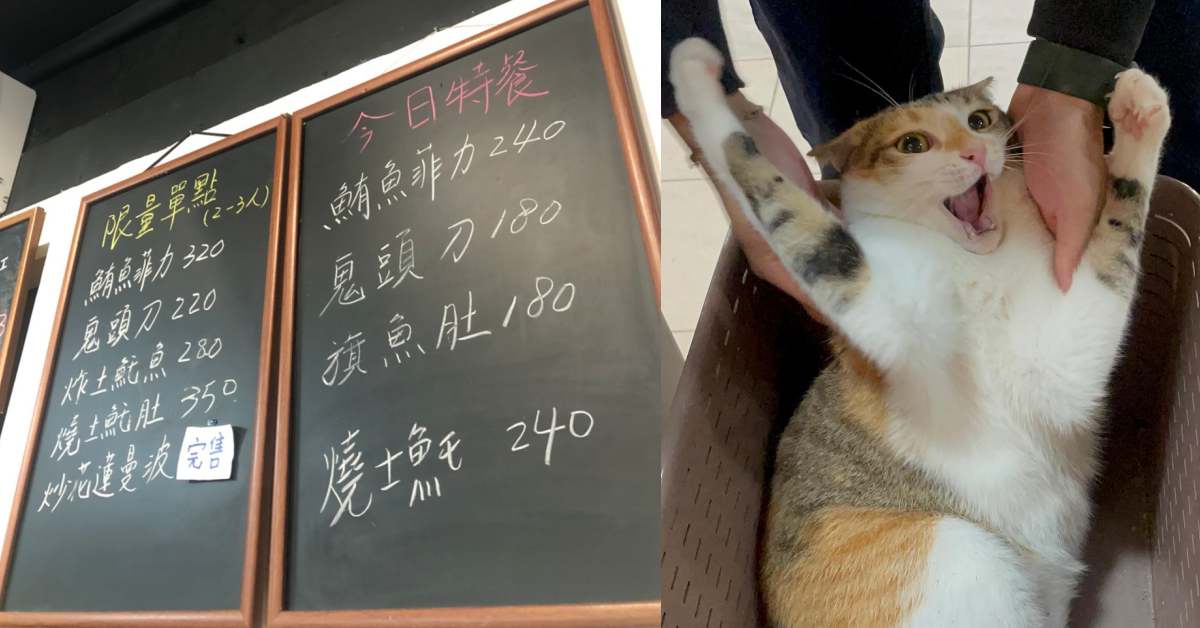 限量單點
(2-3人)
鮪魚菲力 320
鬼頭刀 220
炸土魠魚 280
燒土魠肚 350
炒花蓮曼波 完售
今日特餐
鮪魚菲力 240
鬼頭刀 180
旗魚肚 180
燒土魠 240